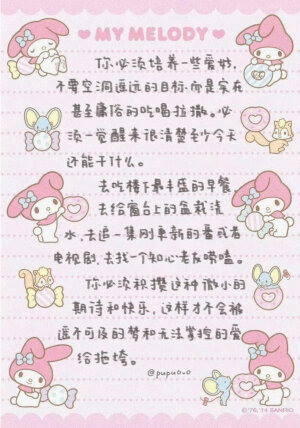 MY MELODY
你必须培养一些爱好,
不要空洞遥远的目标而是实在
甚至庸俗的吃喝拉撒。必
须一觉醒来很清楚至少今天
还能干什么。
去吃楼下最丰盛的早餐
去给窗台上的盆栽浇
水,去追一集刚更新的番或者
电视剧,去找一个知心老友唠嗑。
你必须积攒这种微小的
期待和快乐,这样才不会被
遥不可及的梦和无法掌控的爱
给拖垮。
@pupu0.0
©'76,'14 SANRIO